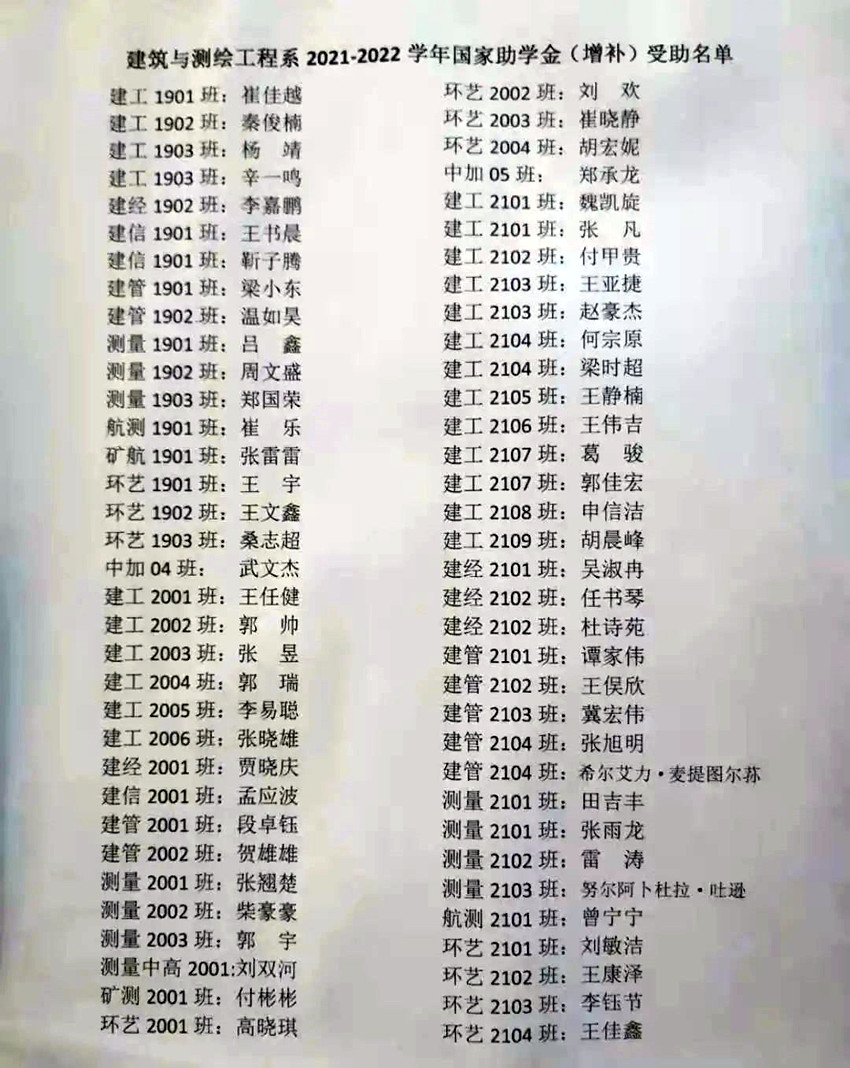 建筑与测绘工程系 2021-2022 学年国家助学金（增补）受助名单
建工 1901 班：崔佳越
建工 1902 班：秦俊楠
建工 1903 班：杨　靖
建工 1903 班：辛一鸣
建经 1902 班：李嘉鹏
建信 1901 班：王书晨
建信 1901 班：靳子腾
建管 1901 班：梁小东
建管 1902 班：温如昊
测量 1901 班：吕　鑫
测量 1902 班：周文盛
测量 1903 班：郑国荣
航测 1901 班：崔　乐
矿航 1901 班：张雷雷
环艺 1901 班：王　宇
环艺 1902 班：王文鑫
环艺 1903 班：桑志超
中加 04 班：　武文杰
建工 2001 班：王任健
建工 2002 班：郭　帅
建工 2003 班：张　昱
建工 2004 班：郭　瑞
建工 2005 班：李易聪
建工 2006 班：张晓雄
建经 2001 班：贾晓庆
建信 2001 班：孟应波
建管 2001 班：段卓钰
建管 2002 班：贺雄雄
测量 2001 班：张翘楚
测量 2002 班：柴豪豪
测量 2003 班：郭　宇
测量中高 2001:刘双河
矿测 2001 班：付彬彬
环艺 2001 班：高晓琪
环艺 2002 班：刘　欢
环艺 2003 班：崔晓静
环艺 2004 班：胡宏妮
中加 05 班：　郑承龙
建工 2101 班：魏凯旋
建工 2101 班：张　凡
建工 2102 班：付甲贵
建工 2103 班：王亚捷
建工 2103 班：赵豪杰
建工 2104 班：何宗原
建工 2104 班：梁时超
建工 2105 班：王静楠
建工 2106 班：王伟吉
建工 2107 班：葛　骏
建工 2107 班：郭佳宏
建工 2108 班：申信洁
建工 2109 班：胡晨峰
建经 2101 班：吴淑冉
建经 2102 班：任书琴
建经 2102 班：杜诗苑
建管 2101 班：谭家伟
建管 2102 班：王俣欣
建管 2103 班：冀宏伟
建管 2104 班：张旭明
建管 2104 班：希尔艾力·麦提图尔荪
测量 2101 班：田吉丰
测量 2101 班：张雨龙
测量 2102 班：雷　涛
测量 2103 班：努尔阿卜杜拉·吐逊
航测 2101 班：曾宁宁
环艺 2101 班：刘敏洁
环艺 2102 班：王康泽
环艺 2103 班：李钰节
环艺 2104 班：王佳鑫